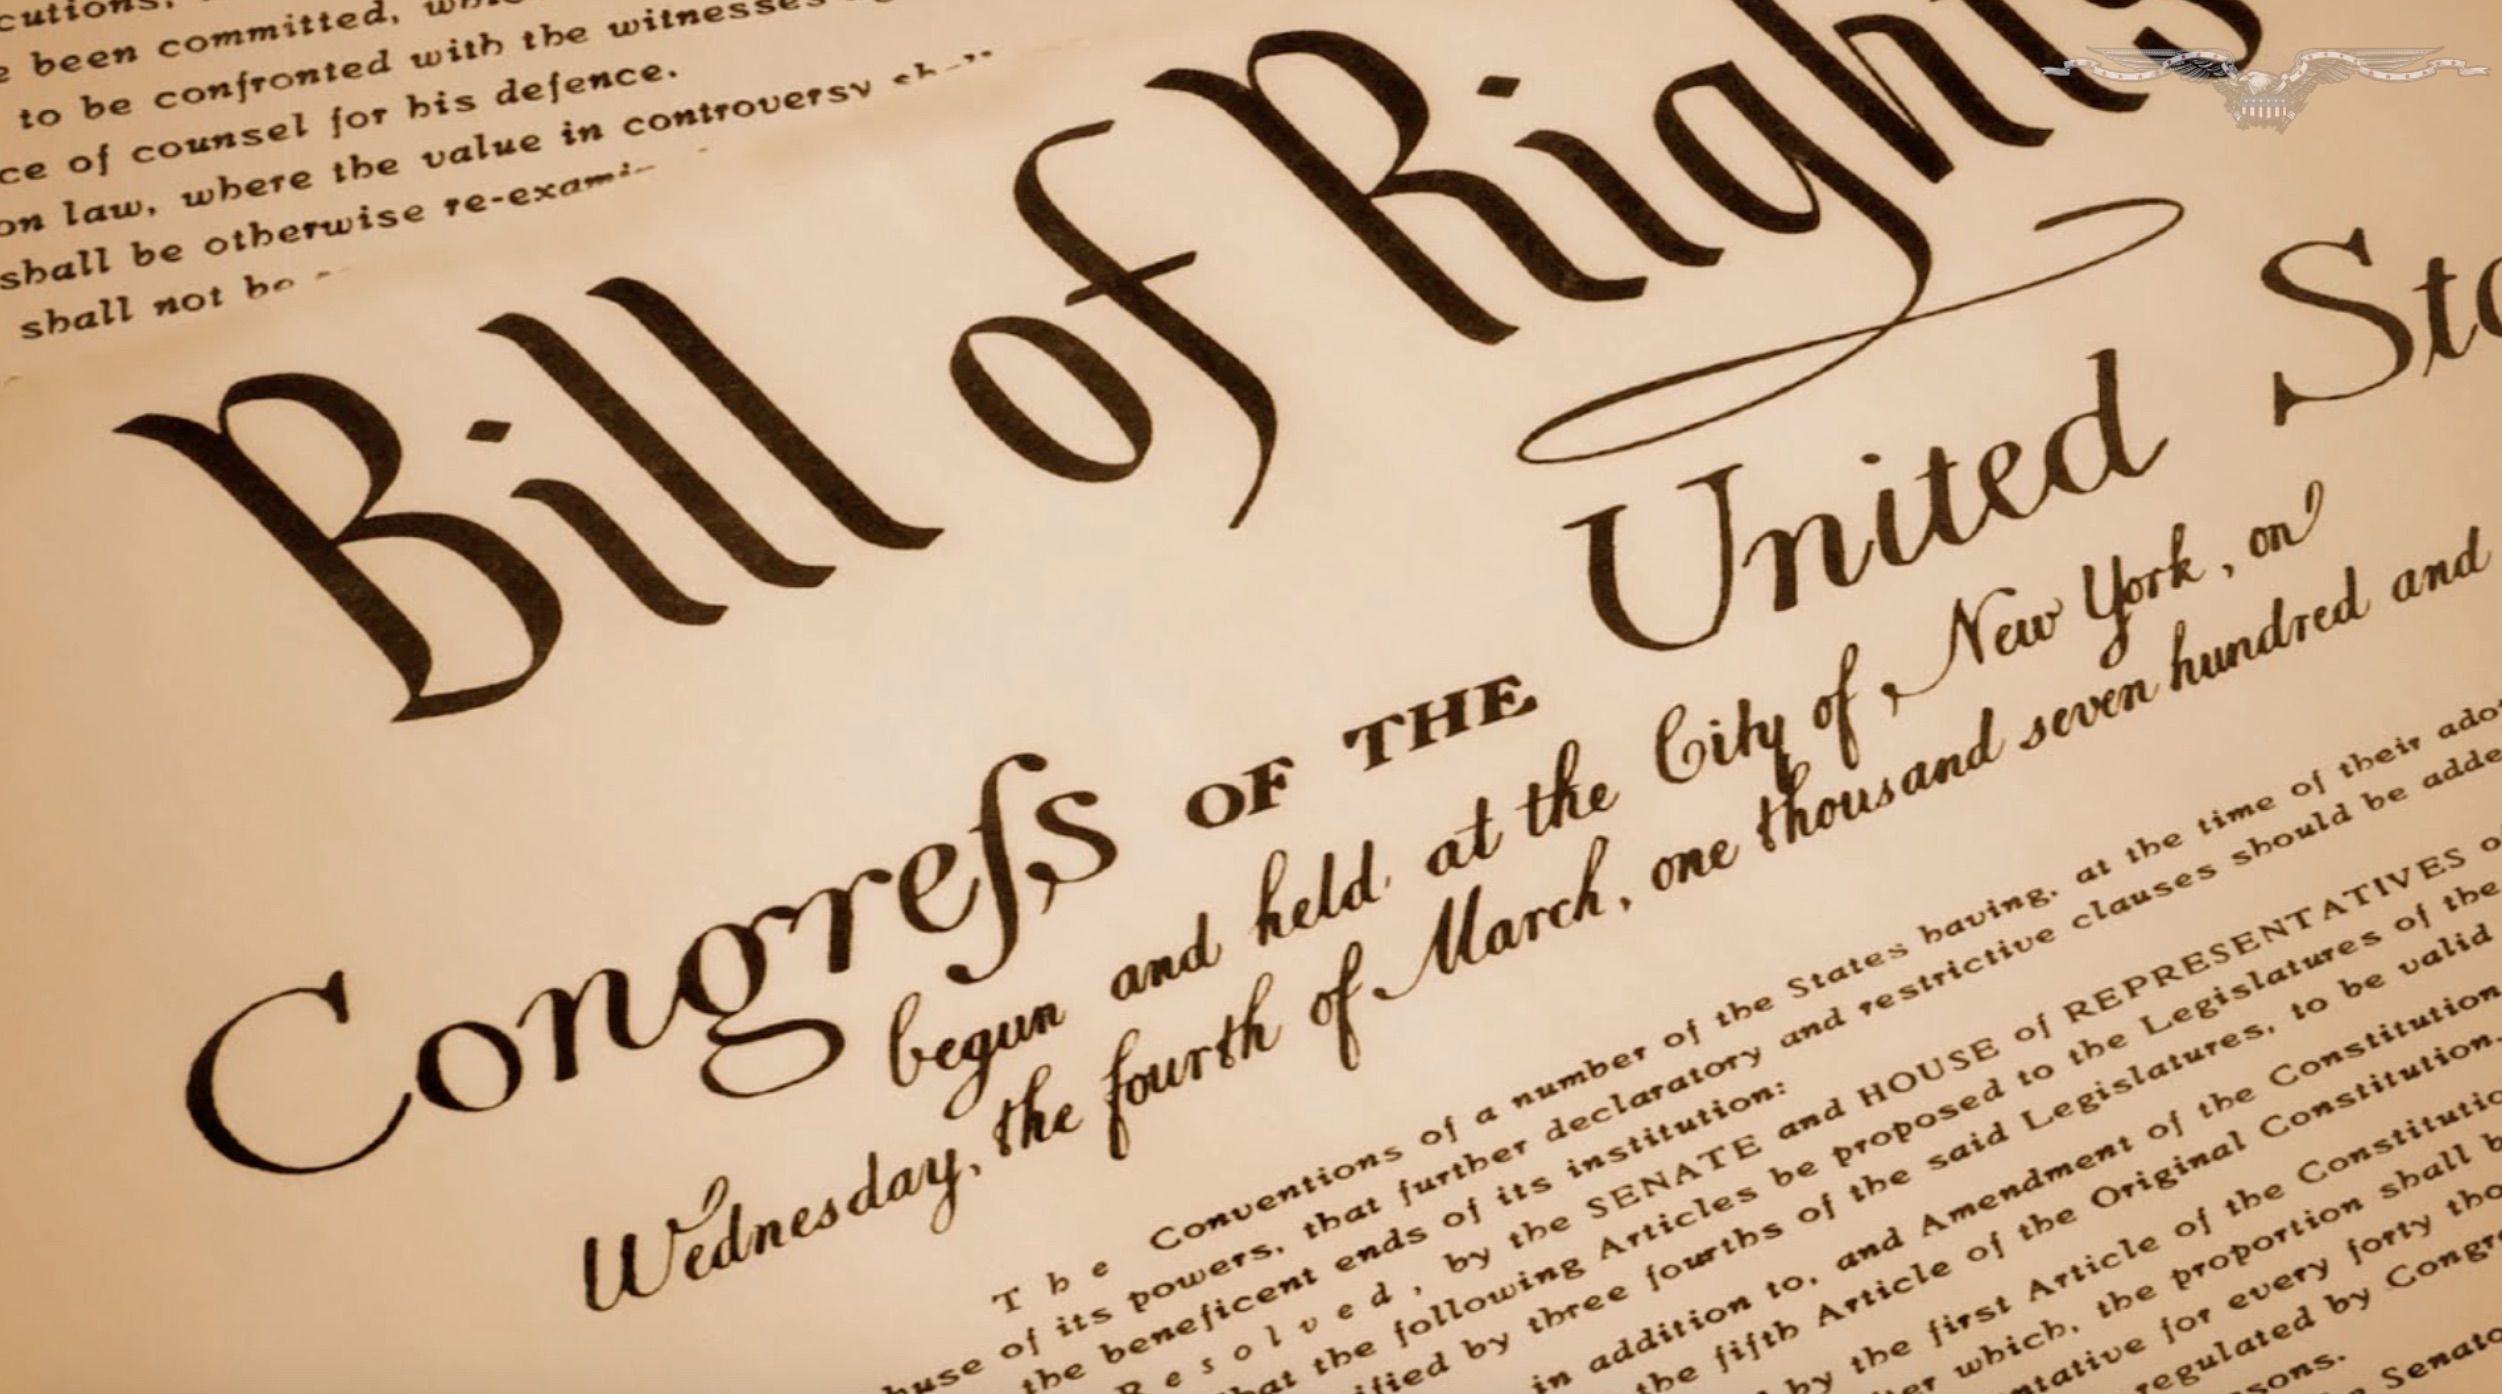 cutions,
been committed,
to be confronted with the witnesses
ce of counsel for his defence.
on law, where the value in controversy
shall be otherwise re-exami
shall not be
Bill of Rights
Congreſs OF THE United Sta
begun and held at the City of New York, on
Wednesday, the fourth of March, one thousand seven hundred and
The Conventions of a number of the States having, at the time of their adop
buse of its powers, that further declaratory and restrictive clauses should be adde
the beneficent ends of its institution:
Resolved, by the SENATE and HOUSE of REPRESENTATIVES of
hat the following Articles be proposed to the Legislatures of the
ified by three fourths of the said Legislatures, to be valid
in addition to, and Amendment of the Constitution
the fifth Article of the Original Constitution.
by the first Article of the Constitutio
er which, the proportion shall b
ntative for every forty tho
regulated by Congre
sons.
Senato